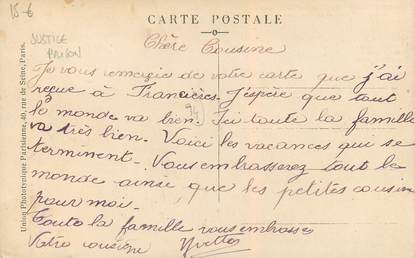 15-€
CARTE POSTALE
JUSTICE
PRISON
Chère Cousine
Je vous remercie de votre carte que j'ai
reçue à Francières. J'espère que tout
le monde va bien. Ici toute la famille
va très bien. Voici les vacances qui se
terminent. Vous embrasserez tout le
monde ainsie que les petites cousin
pour moi.
Toute la famille vous embrasse
Votre cousine Yvette
Union Phototypique Parisienne, 40, rue de Seine, Paris.